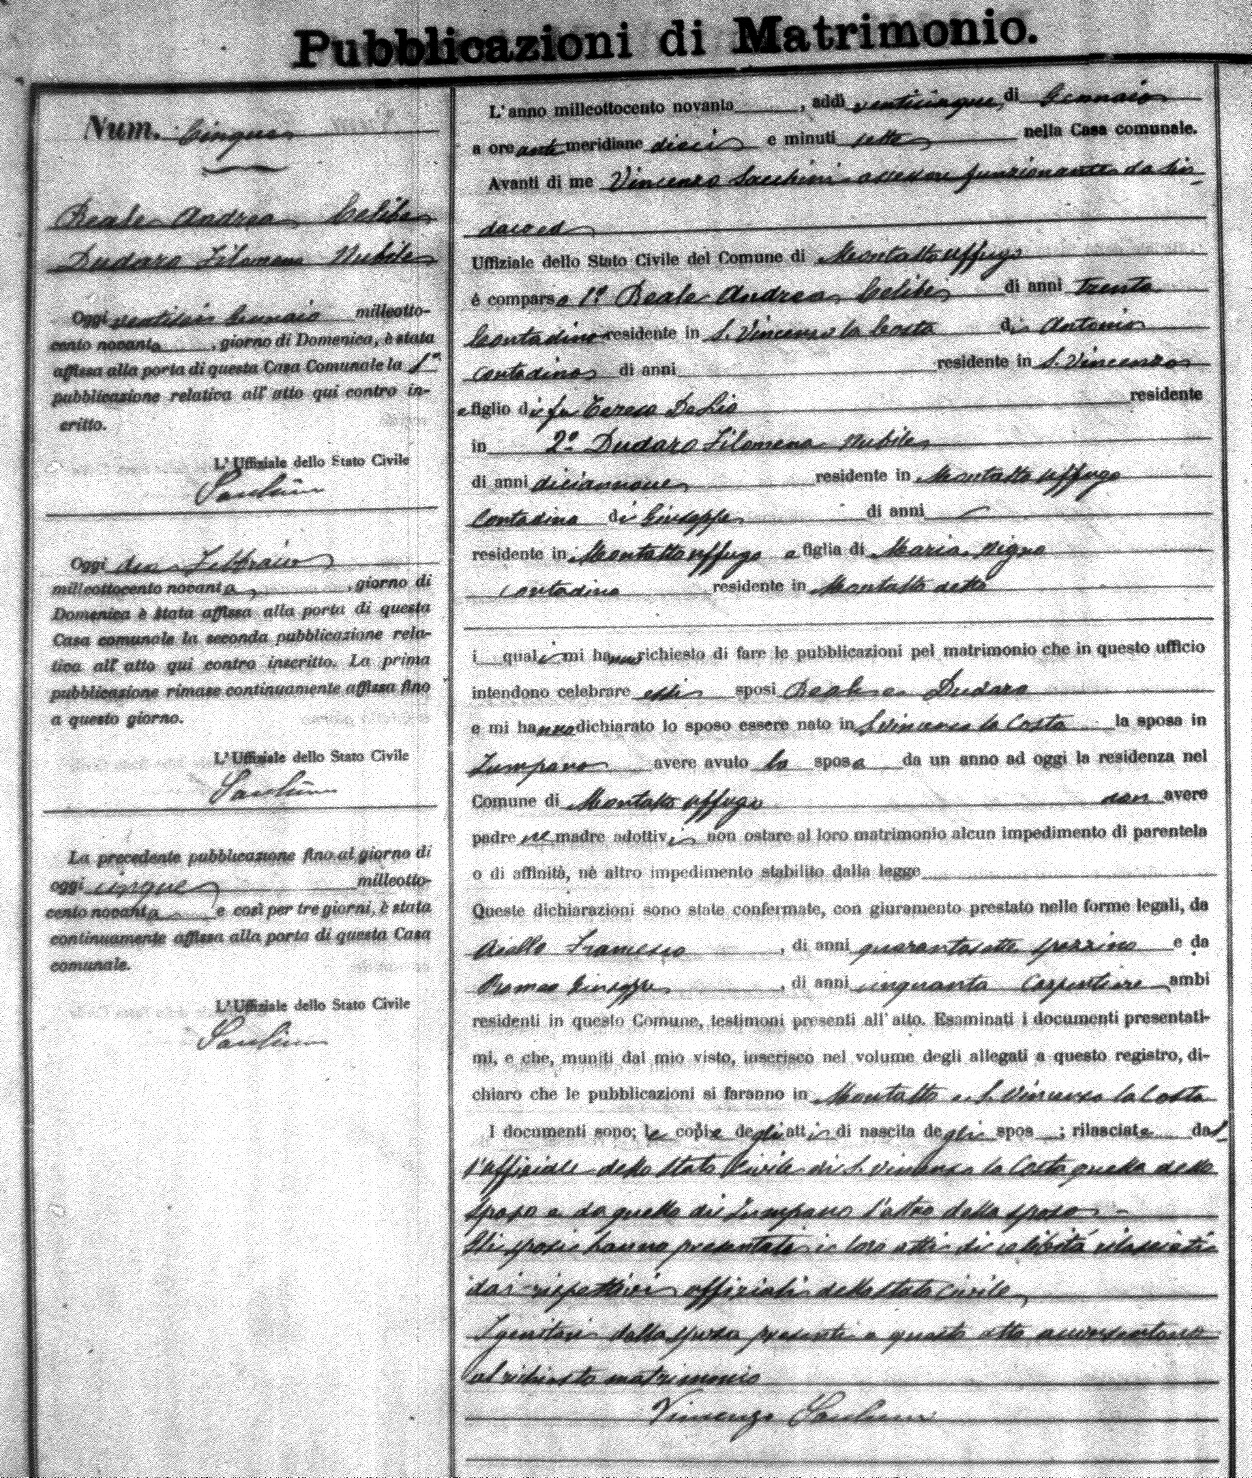 Pubblicazioni di Matrimonio.
Num. Cinque
Reale Andrea Celibe
Dudaro Filomena Nubile
Oggi ventisei Gennaio milleotto-
cento novanta, giorno di Domenica, è stata
affissa alla porta di questa Casa Comunale la 1a
pubblicazione relativa all' atto qui contro in-
critto.
L'Uffiziale dello Stato Civile
Sacchini
Oggi due Febbraio
millecottocento novanta, giorno di
Domenica è stata affissa alla porta di questa
Casa comunale la seconda pubblicazione rela-
tiva all' atto qui contro inscritto. La prima
pubblicazione rimase continuamente affissa fino
a questo giorno.
L'Uffiziale dello Stato Civile
Sacchini
La precedente pubblicazione fino al giorno di
oggi cinque milleotto-
cento novanta e così per tre giorni, è stata
continuamente affissa alla porta di questa Casa
comunale.
L'Uffiziale dello Stato Civile
Sacchini
L'anno milleottocento novanta, addì venticinque di Gennaio
a ore anti meridiane dieci e minuti sette nella Casa comunale.
Avanti di me Vincenzo Sacchini assessore funzionante da Sin-
daco ed
Uffiziale dello Stato Civile del Comune di Montalto Uffugo
è comparso 1° Reale Andrea Celibe di anni trenta
Contadino residente in S. Vincenzo la Costa di Antonio
contadino di anni residente in S. Vincenzo
e figlio di fu Teresa De Lio residente
in 2° Dudaro Filomena Nubile
di anni diciannove residente in Montalto Uffugo
Contadina di Giuseppe di anni
residente in Montalto Uffugo e figlia di Maria Pigno
contadina residente in Montalto detto
i quali mi hanno richiesto di fare le pubblicazioni pel matrimonio che in questo ufficio
intendono celebrare essi sposi Reale e Dudaro
e mi hanno dichiarato lo sposo essere nato in S. Vincenzo la Costa la sposa in
Zumpano avere avuto la sposa da un anno ad oggi la residenza nel
Comune di Montalto Uffugo non avere
padre ne madre adottivi non ostare al loro matrimonio alcun impedimento di parentela
o di affinità, nè altro impedimento stabilito dalla legge
Queste dichiarazioni sono state confermate, con giuramento prestato nelle forme legali, da
Aiello Francesco, di anni quarantasette spazzino e da
Romeo Giuseppe, di anni cinquanta Carpentiere ambi
residenti in questo Comune, testimoni presenti all' atto. Esaminati i documenti presentati-
mi, e che, muniti dal mio visto, inserisco nel volume degli allegati a questo registro, di-
chiaro che le pubblicazioni si faranno in Montalto e S. Vincenzo la Costa
I documenti sono; le copie degli atti di nascita degli spos; rilasciate dal-
l'uffiziale dello Stato Civile di S. Vincenzo la Costa quella dello
sposo e da quello di Zumpano l'altra della sposa
Gli sposi hanno presentato i loro atti di celibetà rilasciati
dai rispettivi uffiziali dello stato civile
I genitori della sposa presenti a questo atto acconsentono
al richiesto matrimonio
Vincenzo Sacchini